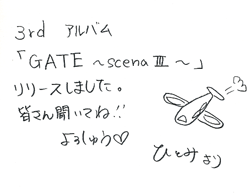 3rd アルバム
「GATE ～scena Ⅲ～」
リリースしました。
皆さん聞いてね!!
よろしゅう♡
ひとみより